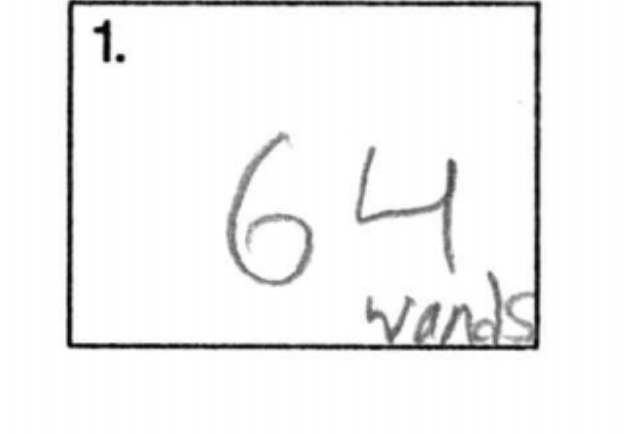 1.
64
wands